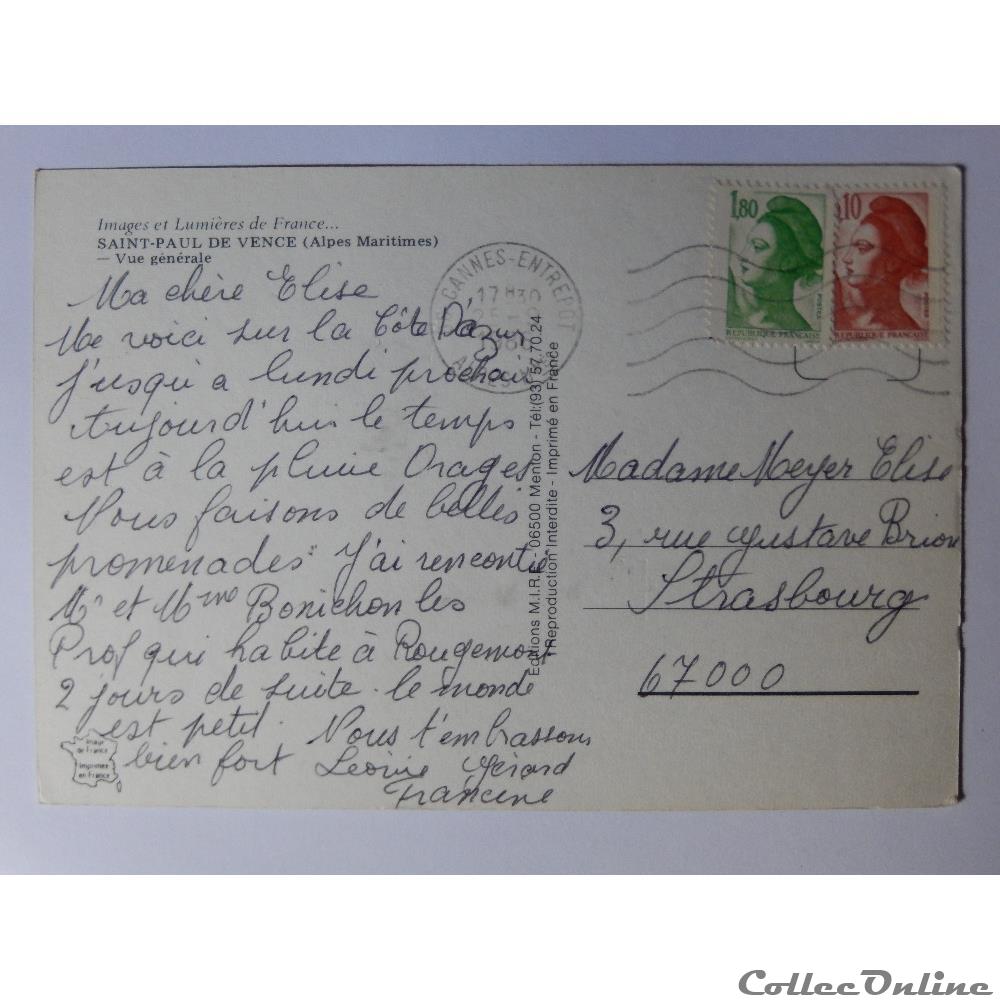 Images et Lumières de France...
SAINT-PAUL DE VENCE (Alpes Maritimes)
— Vue générale
Ma chère Elise
Me voici sur la Côte D'Azur
jusqu'a lundi prochain
Aujourd'hui le temps
est à la pluie Orages
Nous faisons de belles
promenades. J'ai rencontré
Mr et Mme Bonichon les
Prof qui habite à Rougemont
2 jours de suite. le monde
est petit. Nous t'embrassons
bien fort Léonie Gérard
Francine
Imagé
de France
Imprimée
en France
Editions M.I.R.E. - 06500 Menton - Tél:(93) 57.70.24
Reproduction Interdite - Imprimé en France
CANNES-ENTREPOT
17H30
1,80
POSTES
REPUBLIQUE FRANÇAISE
0,10
POSTES
REPUBLIQUE FRANÇAISE
Madame Meyer Elise
3, rue Gustave Brion
Strasbourg
67000
CollecOnline